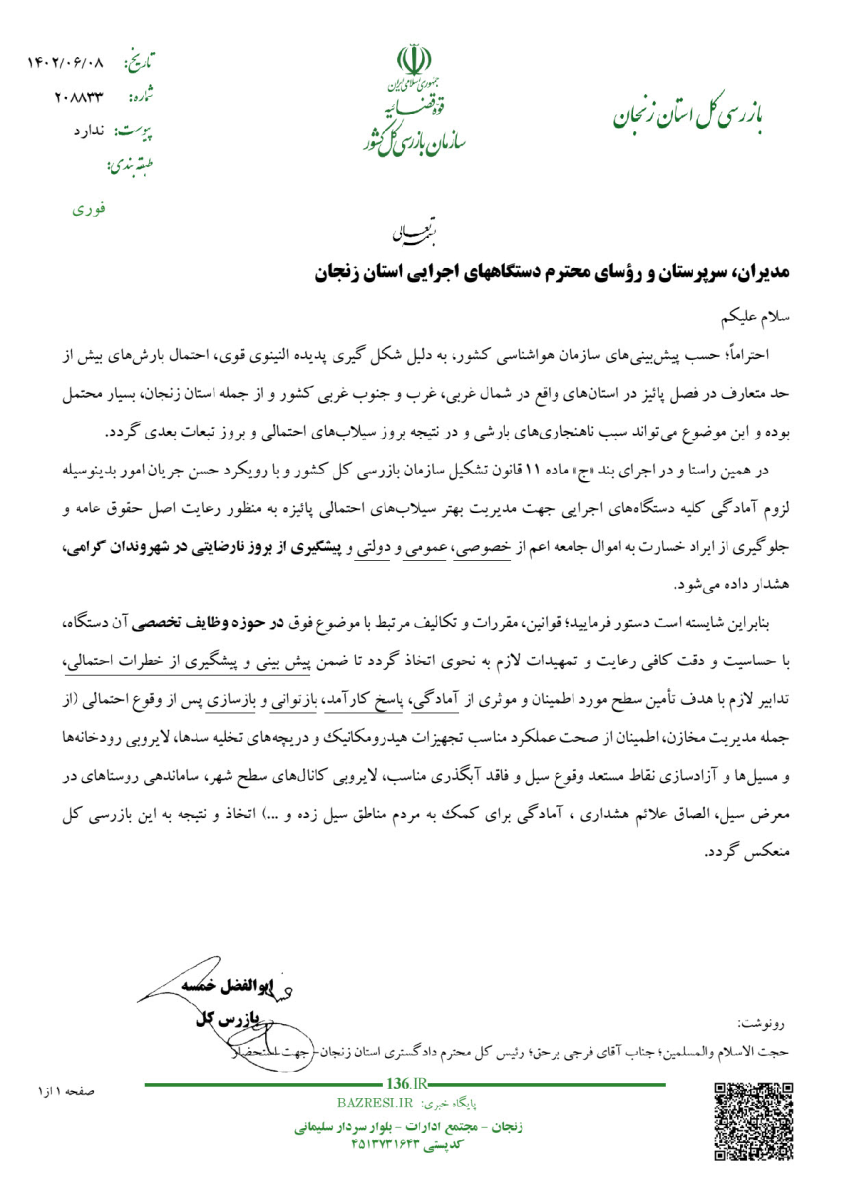 بازرسی کل استان زنجان
جمهوری اسلامی ایران
قوه قضائیه
سازمان بازرسی کل کشور
تاریخ: ۱۴۰۲/۰۶/۰۸
شماره: ۲۰۸۸۳۳
پیوست: ندارد
طبقه بندی:
فوری
بسمه تعالی
مدیران، سرپرستان و رؤسای محترم دستگاههای اجرایی استان زنجان
سلام علیکم
احتراماً؛ حسب پیش‌بینی‌های سازمان هواشناسی کشور، به دلیل شکل گیری پدیده النینوی قوی، احتمال بارش‌های بیش از
حد متعارف در فصل پائیز در استان‌های واقع در شمال غربی، غرب و جنوب غربی کشور و از جمله استان زنجان، بسیار محتمل
بوده و این موضوع می‌تواند سبب ناهنجاری‌های بارشی و در نتیجه بروز سیلاب‌های احتمالی و بروز تبعات بعدی گردد.
در همین راستا و در اجرای بند «ج» ماده ۱۱ قانون تشکیل سازمان بازرسی کل کشور و با رویکرد حسن جریان امور بدینوسیله
لزوم آمادگی کلیه دستگاه‌های اجرایی جهت مدیریت بهتر سیلاب‌های احتمالی پائیزه به منظور رعایت اصل حقوق عامه و
جلوگیری از ایراد خسارت به اموال جامعه اعم از خصوصی، عمومی و دولتی و پیشگیری از بروز نارضایتی در شهروندان گرامی،
هشدار داده می‌شود.
بنابراین شایسته است دستور فرمایید؛ قوانین، مقررات و تکالیف مرتبط با موضوع فوق در حوزه وظایف تخصصی آن دستگاه،
با حساسیت و دقت کافی رعایت و تمهیدات لازم به نحوی اتخاذ گردد تا ضمن پیش بینی و پیشگیری از خطرات احتمالی،
تدابیر لازم با هدف تأمین سطح مورد اطمینان و موثری از آمادگی، پاسخ کارآمد، بازتوانی و بازسازی پس از وقوع احتمالی (از
جمله مدیریت مخازن، اطمینان از صحت عملکرد مناسب تجهیزات هیدرومکانیک و دریچه‌های تخلیه سدها، لایروبی رودخانه‌ها
و مسیل‌ها و آزادسازی نقاط مستعد وقوع سیل و فاقد آبگذری مناسب، لایروبی کانال‌های سطح شهر، ساماندهی روستاهای در
معرض سیل، الصاق علائم هشداری ، آمادگی برای کمک به مردم مناطق سیل زده و ...) اتخاذ و نتیجه به این بازرسی کل
منعکس گردد.
ابوالفضل خمسه
بازرس کل
رونوشت:
حجت الاسلام والمسلمین؛ جناب آقای فرجی برحق؛ رئیس کل محترم دادگستری استان زنجان- جهت استحضار
136.IR
پایگاه خبری: BAZRESI.IR
زنجان - مجتمع ادارات - بلوار سردار سلیمانی
کدپستی ۴۵۱۳۷۳۱۶۴۳
صفحه ۱ از ۱